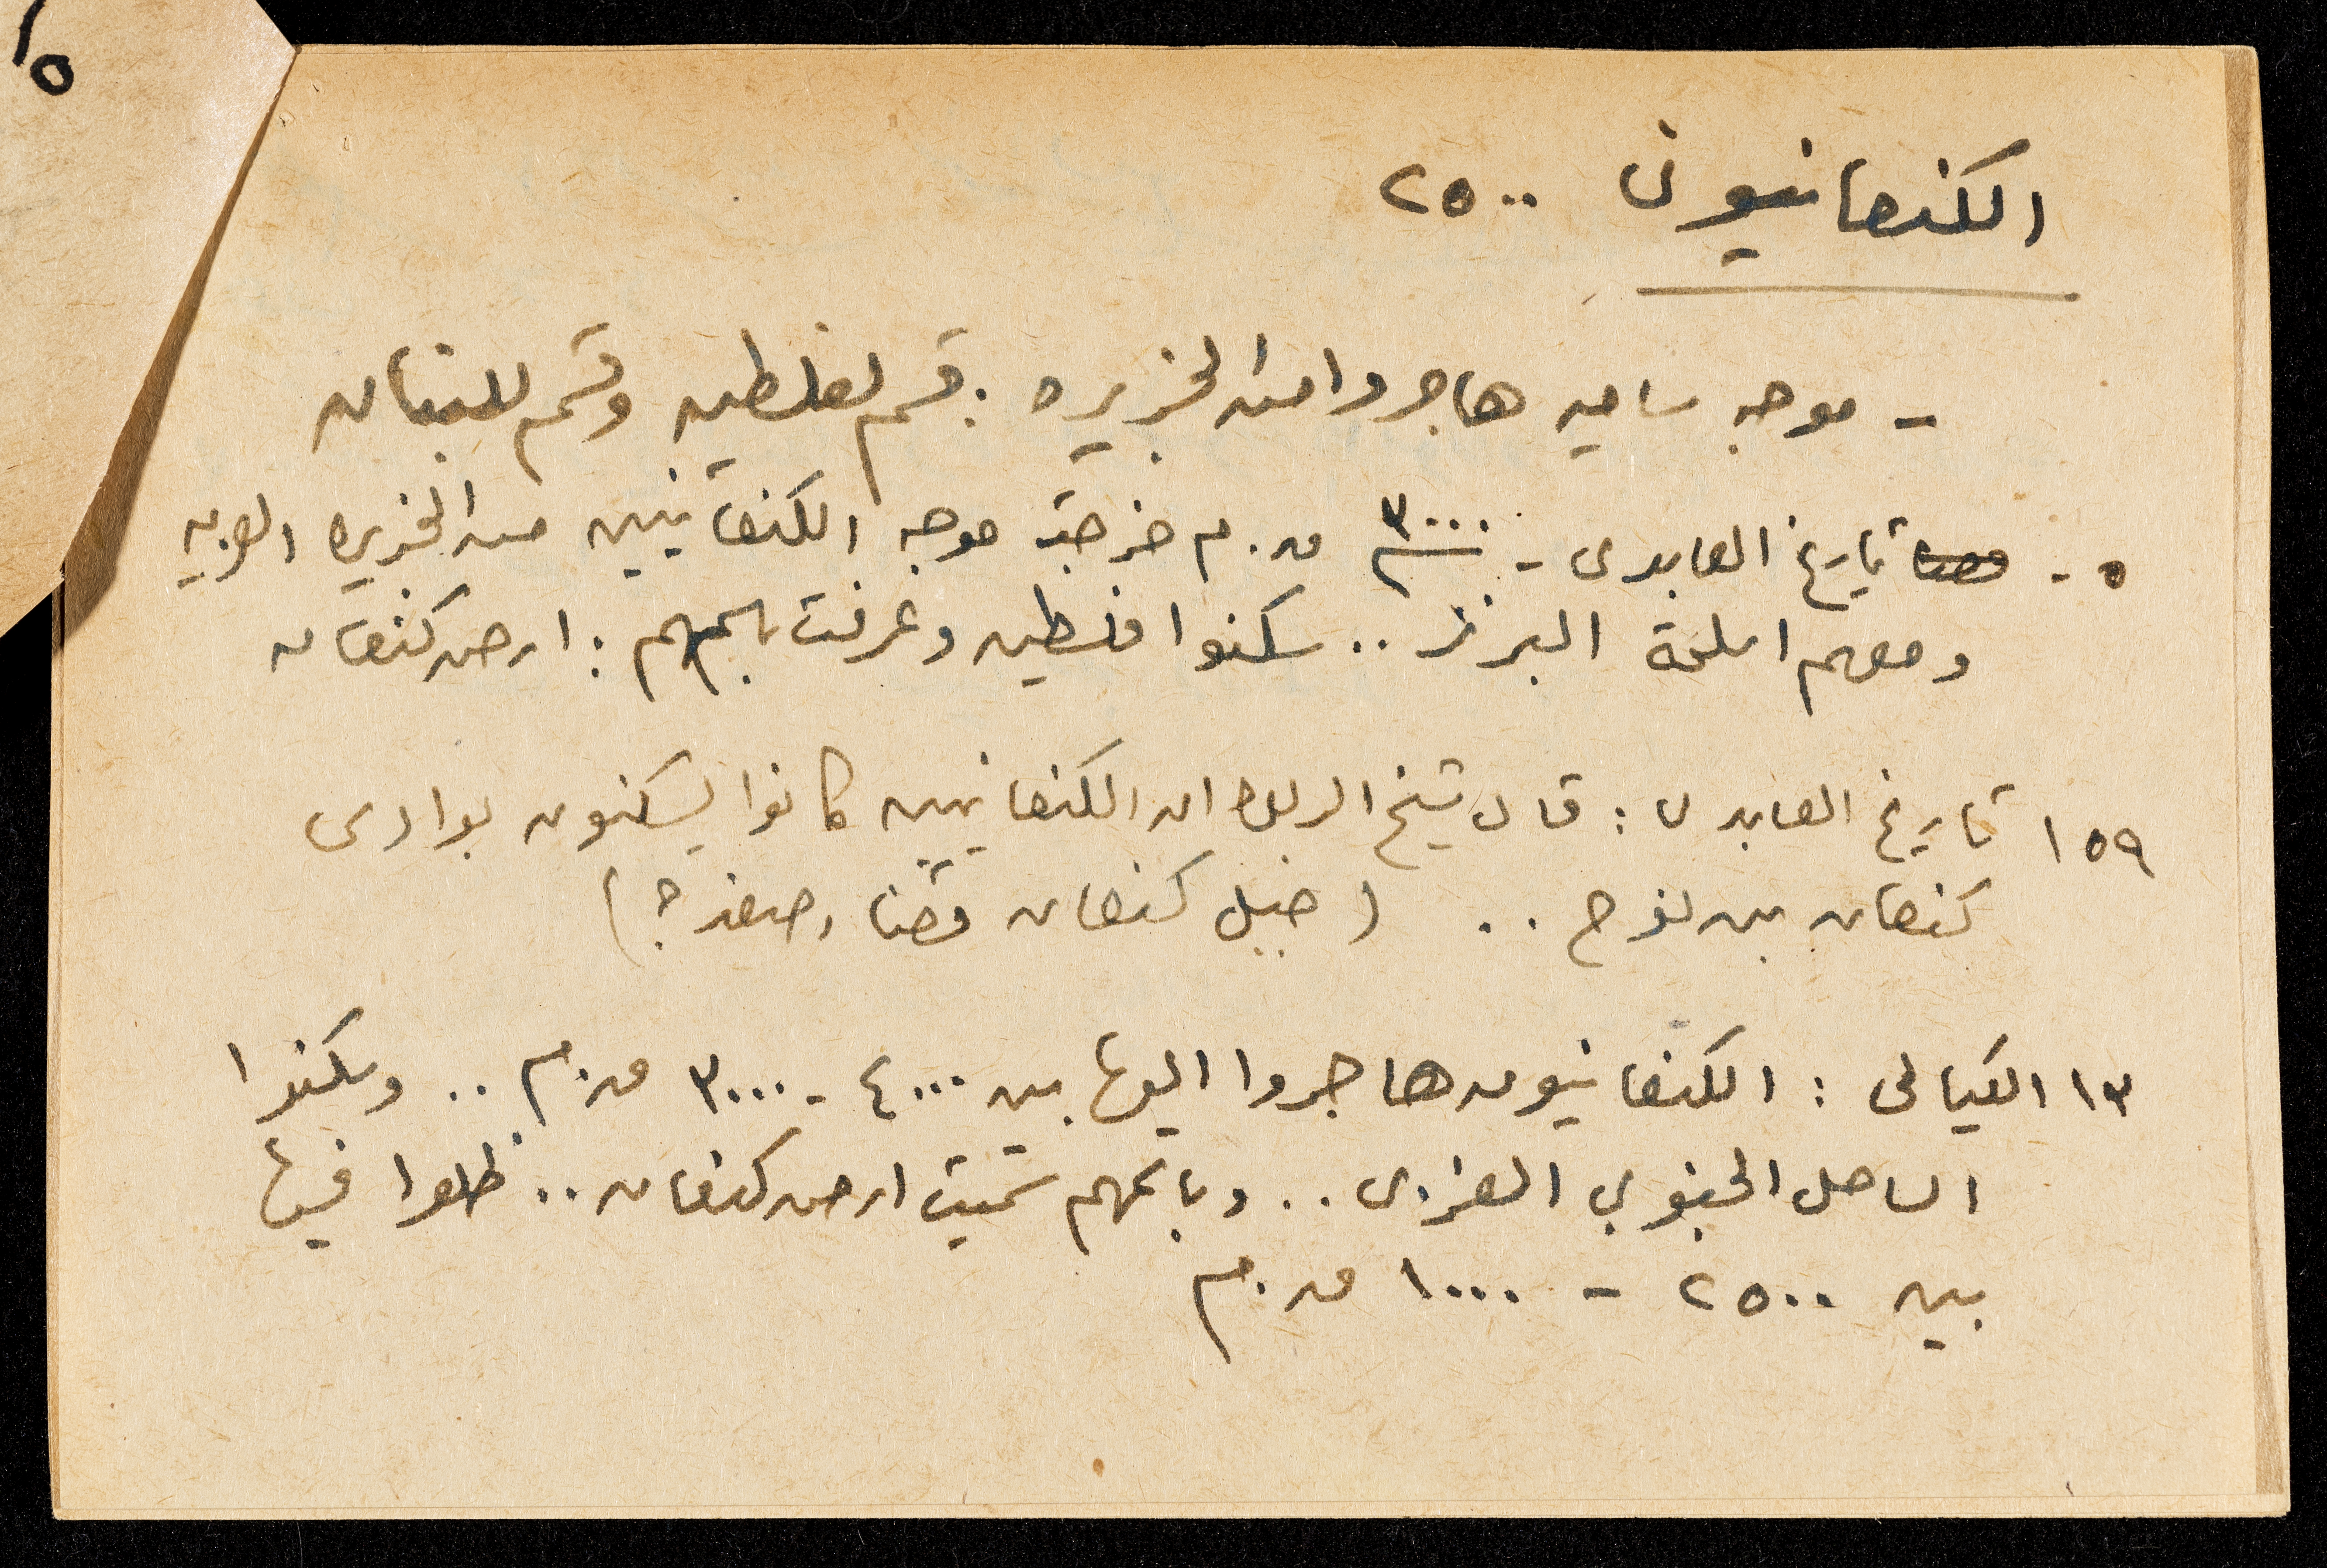 ٥
الكنعانيون ٢٥٠٠
- موجه ساميه هاجروا من الجزيره : قسم لفلسطين وقسم للبنان
٥ - تاريخ العابدى - ٣٠٠٠ ق.م خرجت موجه الكنعانيين من الجزيره العربيه
ومعهم اسلحة البرنز .. سكنوا فلسطين وعرفت باسمهم : ارض كنعان
١٥٩ تاريخ العابدى : قال شيخ الربوه ان الكنعانيين كانوا يسكنون بوادى
كنعان بن نوح .. ( جبل كنعان قضاء صفد ؟ )
١٣ الكيالى : الكنعانيون هاجروا اليها بين ٤٠٠٠ - ٣٠٠٠ ق.م .. وسكنوا
الساحل الجنوبي الغربى .. وباسمهم سميت ارض كنعان .. ظلوا فيها
بين ٢٥٠٠ - ١٠٠٠ ق.م